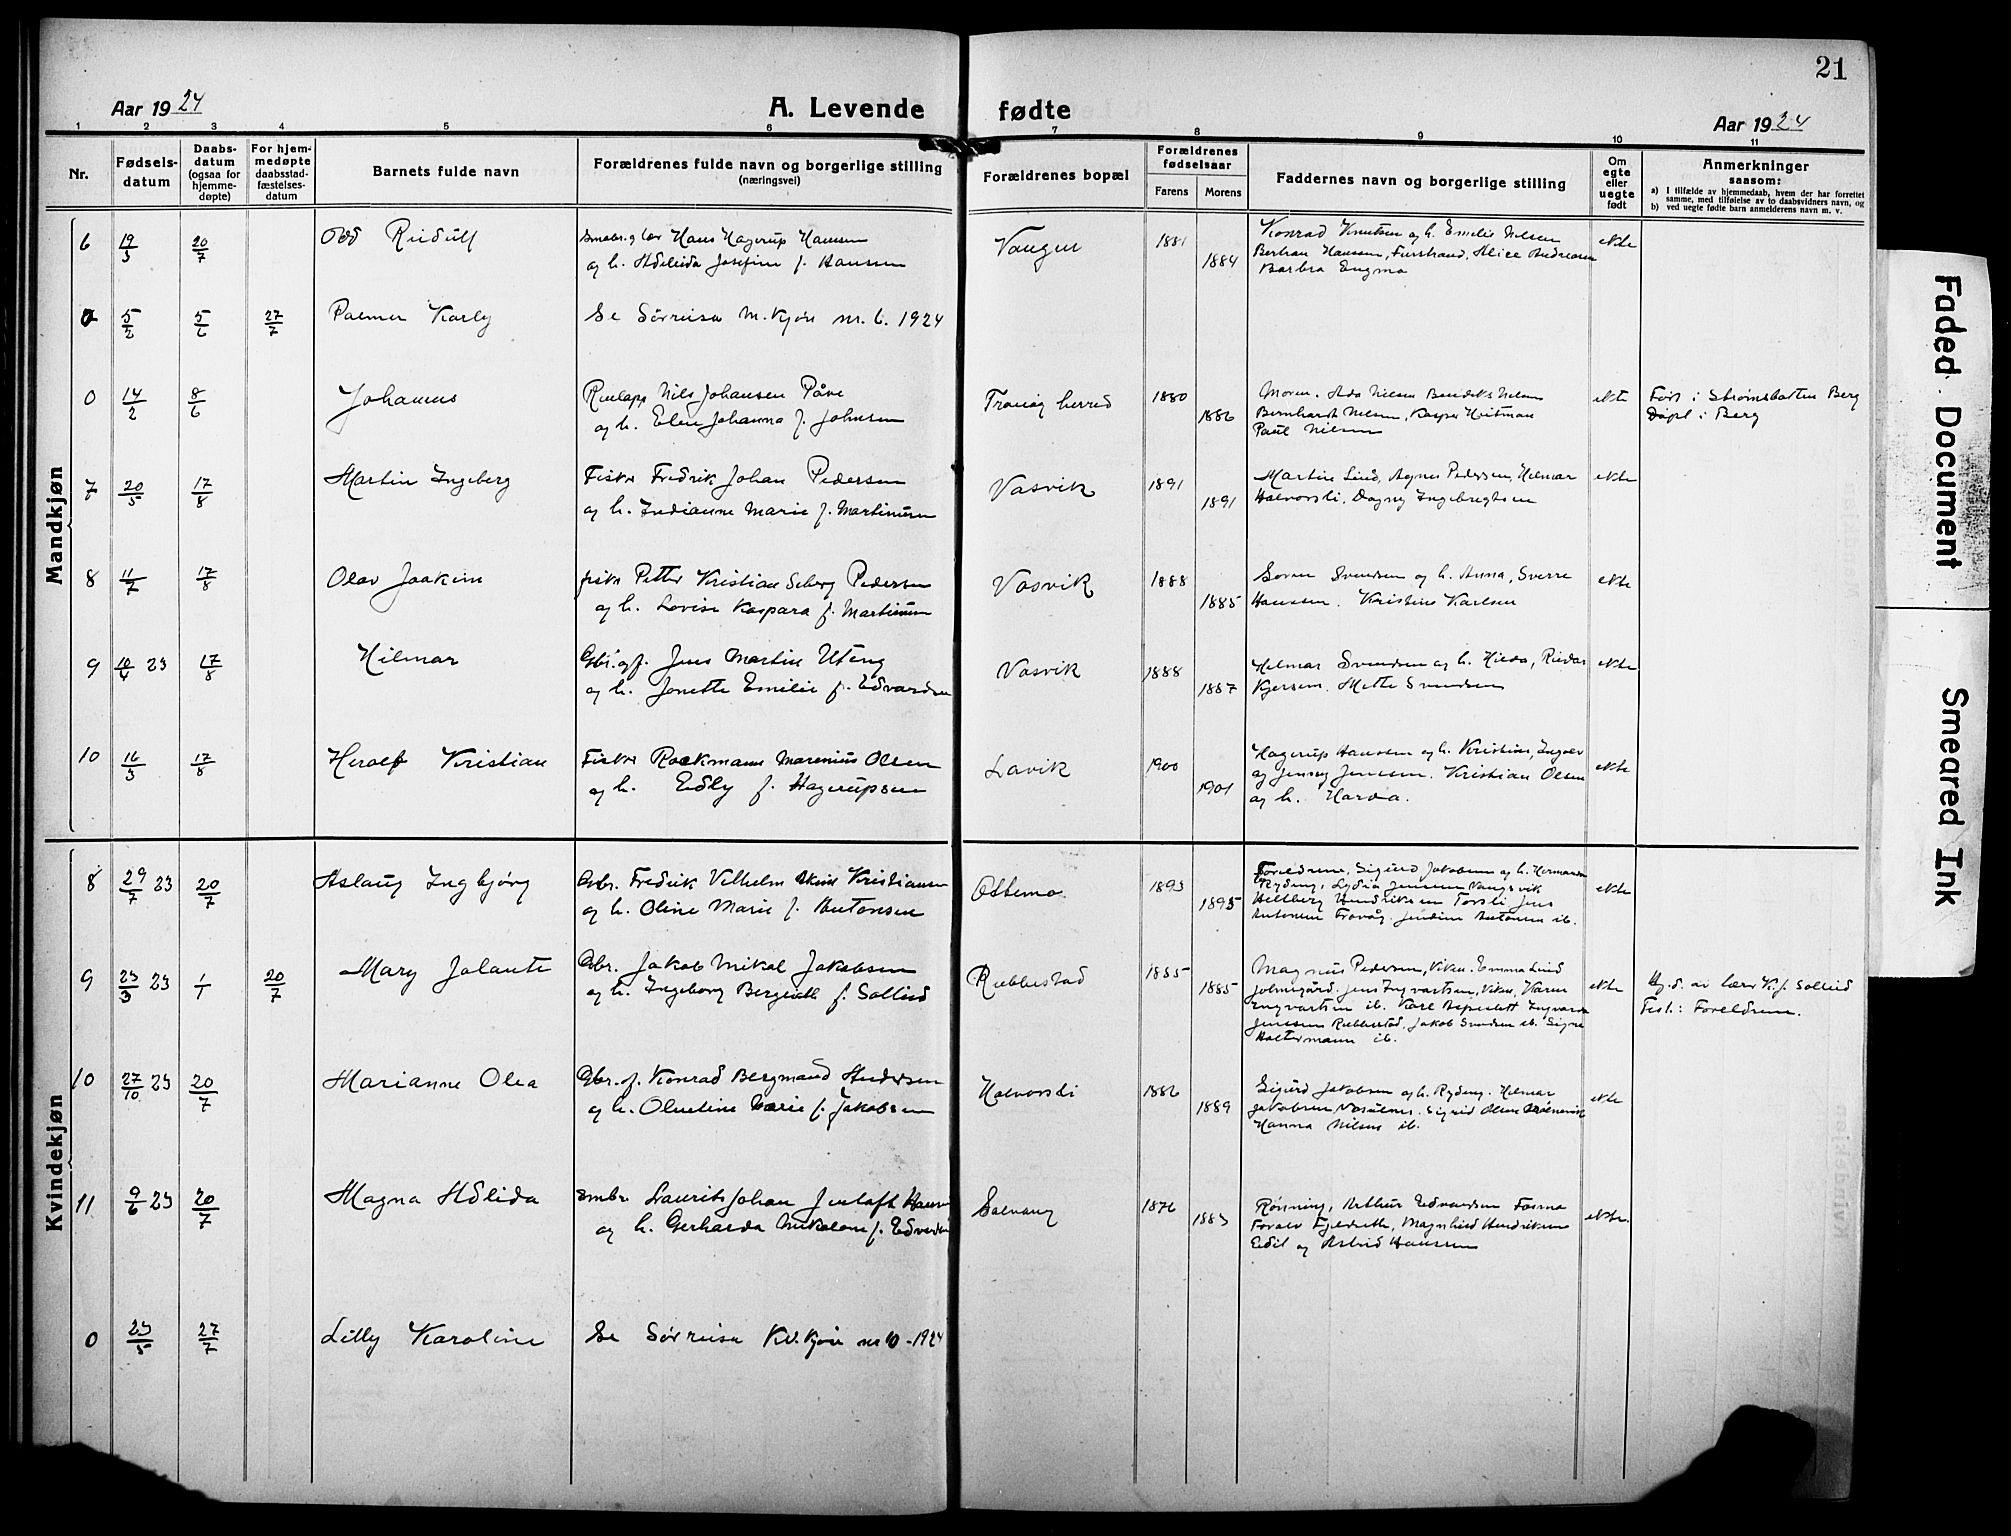 21
Aar 1924
A. Levende fødte
Aar 1924
1 2 3 4 5 6 7 8 9 10 11
Nr.
Fødsels-
datum
Daabs-
datum
(ogsaa for
hjemme-
døpte)
For hjem-
medøpte
daabsstad-
fæstelses-
datum
Barnets fulde navn
Forældrenes fulde navn og borgerlige stilling
(næringsvei)
Forældrenes bopæl
Forældrenes
fødselsaar
Farens Morens
Faddernes navn og borgerlige stilling
Om
egte
eller
uegte
født
Anmerkninger
saasom:
a) I tilfælde av hjemmedaab, hvem der har forrettet
samme, med tilføielse av to daabsvidners navn, og
b) ved uegte fødte barn anmelderens navn m. v.
Mandkjøn
6 19/3 20/7 Odd Hans Hagerup Hansen
og h. Josefine f. Hansen
1881
1884
Konrad Knutsen og h. Emelie Nilsen
Hanssen, Alice Andreasen
Barbra Engmo
ekte
5/2 5/6 27/7 Palmer Karly Se Sørreisa M.kjøn nr. 6. 1924
0 14/2 8/6 Johannes Nils Johansen Påve
og h. Elen Johanna f. Johnsen
Tranøy herred
1880
1886
Nilsen
Bernhardt Nilsen, Kasper Heitman
Paul Nilsen
ekte
Født i Strømsbotten Berg
Døpt i Berg
7 20/5 17/8 Martin Ingeberg Fisker Fredrik Johan Pedersen
og h. Indianne Marie f. Martinusen
Vasvik
1891
1891
Martin Lind, Agnes Pedersen, Hilmar
Halvorsli, Dagny Ingebrigtsen
ekte
8 11/7 17/8 Olav Joakim fisker Petter Kristian Pedersen
og h. Lovise Kaspara f. Martinusen
Vasvik
1888
1885
Søren Svendsen og h. Anna, Sverre
Hanssen. Kristine Karlsen
ekte
9 23 17/8 Hilmar Jens Martin Uteng
og h. Jonette Emilie f. Edvardsen
Vasvik
1888
1887
Hilmar Svendsen og h. Hilda, Reidar
Mette Svendsen
ekte
10 16/3 17/8 Kristian Fisker Rockmann Marenius Olsen
og h. Edly f. Hagerupsen
Lavik
1900
1901
Hagerup Hanssen og h. Kristine, Ingolv
og Jenny Jenssen. Kristian Olsen
og h. Harda.
ekte
Kvindekjøn
8 29/7 23 20/7 Aslaug Ingbjørg Gbr. Fredrik Vilhelm Kristiansen
og h. Oline Marie f. Antonsen
Ottemo
1893
1895
Foreldrene, Sigurd Jakobsen og h. Hermanda
Ryding, Lydia Jensen Vangsvik
Hendriksen Torsli Jens
Antonsen Tranøy. Antonsen ib.
ekte
9 23/3 23 1/1 20/7 Mary Jolante Gbr. Jakob Mikal Jakobsen
og h. Ingeborg f. Sollied
Rubbestad
1885
1885
Magnus Pedersen, Viken. Emma Lind
Jens Ingvartsen, Viken, Karen
Ingvartsen ib. Karl
Jenssen Rubbestad, Jakob Svendsen ib. Signe
Holtermann ib.
ekte
Hj.d. av lærer K. J. Sollied
Test: Foreldrene.
10 27/10 23 20/7 Marianne Olea Gbr. f. Konrad Bergmand Andersen
og h. Marie f. Jakobsen
Halvorsli
1886
1889
Sigurd Jakobsen og h. Ryding. Hilmar
Jakobsen Sigrid Olsen
Hanna Nilsen ib.
ekte
11 9/6 23 20/7 Magna Adlida Smbr. Laurits Johan
og h. Gerharda f. Edvardsen
Solvang
1876
1883
Rønning, Arthur Edvardsen
Magnhild Hendriksen
Edil og Astrid Hanssen
ekte.
0 23/5 27/7 Lilly Karoline Se Sørreisa Kv.kjøn nr 10 - 1924
Faded Document
Smeared Ink